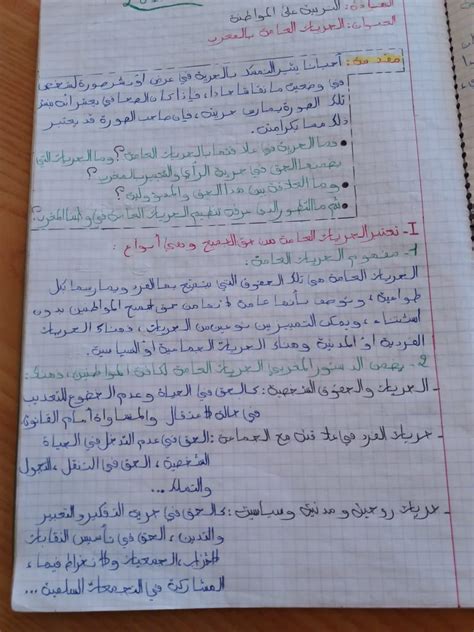 المادة: التربية على المواطنة
العنوان: الحريات العامة بالمغرب
مقدمة: أحيانا يثير التمسك بالحرية في عرض أو نشر صورة لشخص
في وضعية ما نقاشا حادا، فإذا كان الصحافي يعتبر أنه بنشر
تلك الصورة يمارس حريته، فإن صاحب الصورة قد يعتبر
ذلك مسا بكرامته.
• فما الحرية في علاقتها بالحريات العامة؟ وما الحريات التي
يضمنها الحق في حرية الرأي والتعبير بالمغرب؟
• وما العلاقة بين هذا الحق والمسؤولية؟
• ثم ما التطور الذي عرفه تنظيم الحريات العامة في وطننا المغرب؟
I- تعتبر الحريات العامة من حق الجميع وهي أنواع:
1- مفهوم الحريات العامة:
الحريات العامة هي تلك الحقوق التي يتمتع بها الفرد ويمارسها بكل
طواعية، وتوصف بأنها عامة لأنها من حق جميع المواطنين بدون
استثناء، ويمكن التمييز بين نوعين من الحريات، هناك الحريات
الفردية أو المدنية وهناك الحريات الجماعية أو السياسية.
2- يضمن الدستور المغربي الحريات العامة لكافة المواطنين، وهناك:
- الحريات والحقوق الشخصية: كالحق في الحياة وعدم الخضوع للتعذيب
في حالة الاعتقال والمساواة أمام القانون.
- حريات الفرد في علاقته مع الجماعة: الحق في عدم التدخل في الحياة
الشخصية، الحق في التنقل، التجول
والتملك...
- حريات روحية ومدنية وسياسية: كالحق في حرية التفكير والتعبير
والتدين، الحق في تأسيس النقابات
الأحزاب، الجمعيات والانخراط فيها،
المشاركة في التجمعات السلمية...